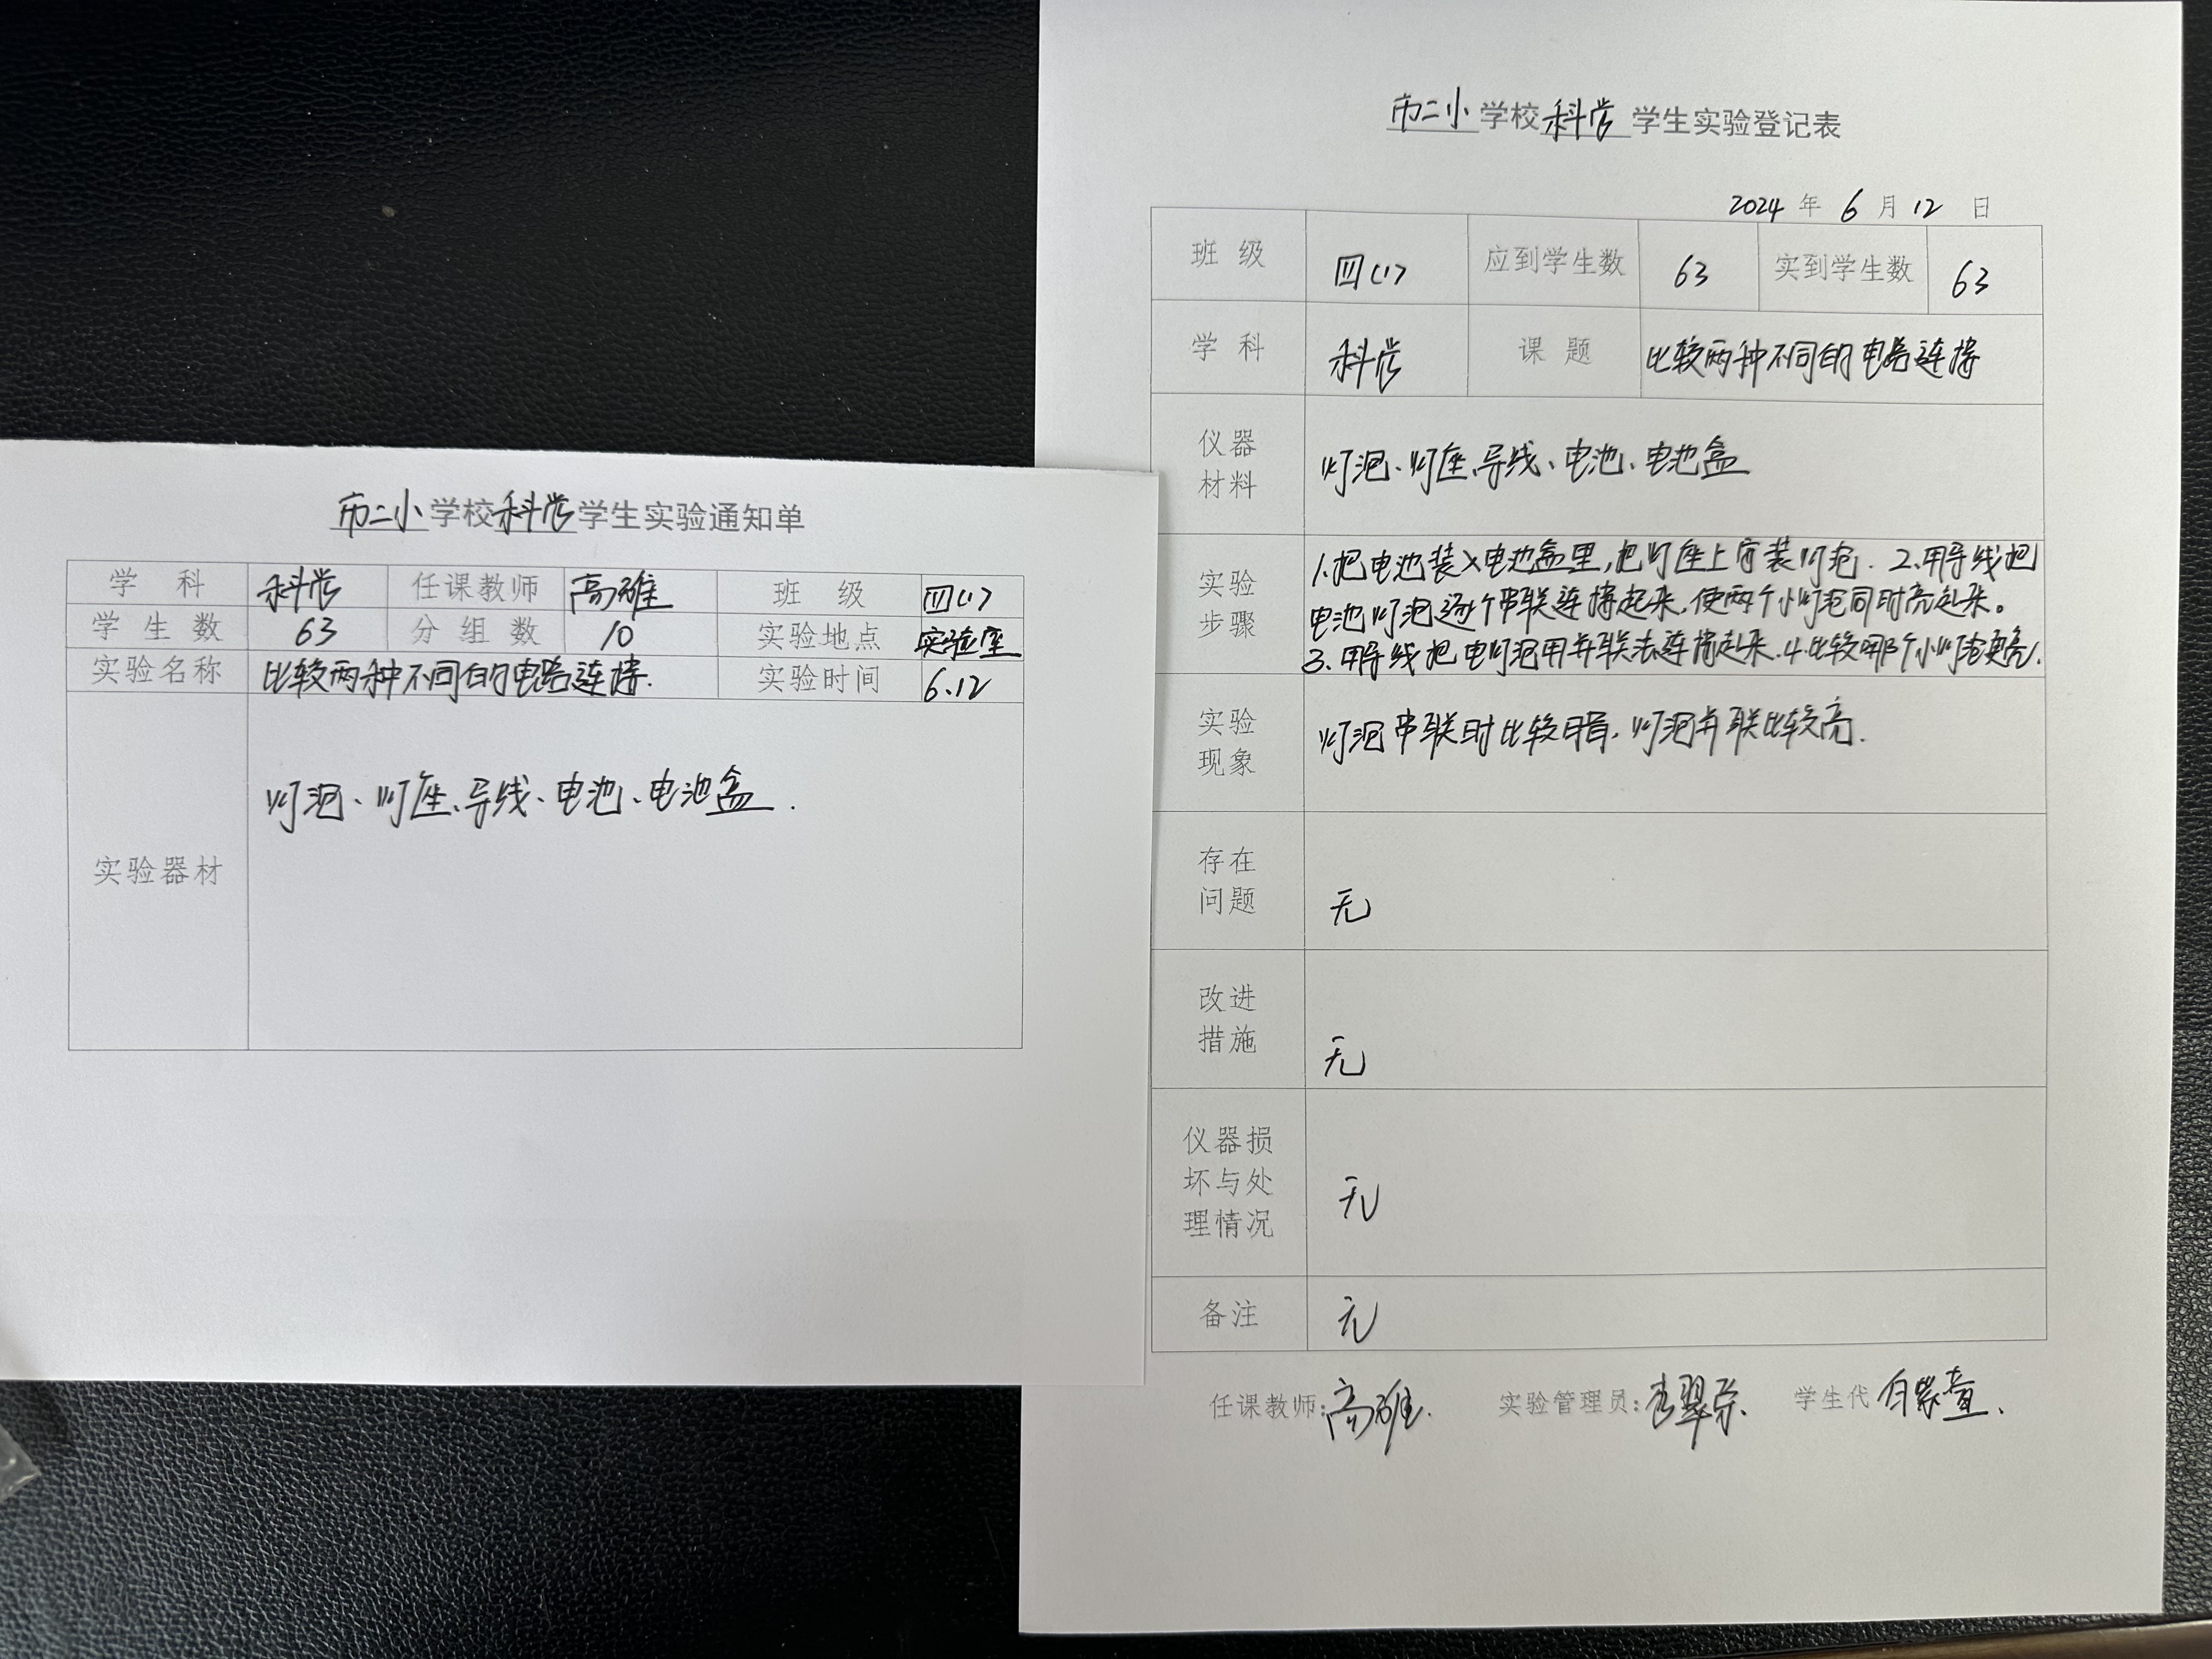 市二小学校科学学生实验通知单
学科 科学 任课教师 高雅 班级 四(1)
学生数 63 分组数 10 实验地点 实验室
实验名称 比较两种不同的电路连接. 实验时间 6.12
实验器材 灯泡、灯座、导线、电池、电池盒.
市二小学校科学学生实验登记表
2024年6月12日
班级 四(1) 应到学生数 63 实到学生数 63
学科 科学 课题 比较两种不同的电路连接
仪器
材料
灯泡、灯座、导线、电池、电池盒
实验
步骤
1.把电池装入电池盒里,把灯座上安装灯泡. 2.用导线把
电池灯泡逐个串联连接起来,使两个小灯泡同时亮起来。
3.用导线把电灯泡用并联法连接起来.4.比较哪个小灯泡更亮.
实验
现象
灯泡串联时比较暗,灯泡并联比较亮.
存在
问题
无
改进
措施
无
仪器损
坏与处
理情况
无
备注 无
任课教师:高雅. 实验管理员: 学生代